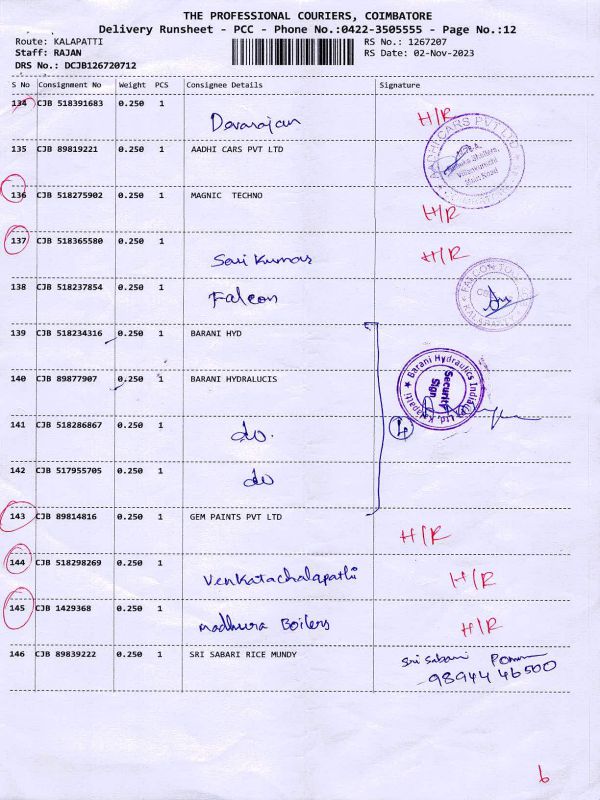 THE PROFESSIONAL COURIERS, COIMBATORE
Delivery Runsheet - PCC - Phone No.:0422-3505555 - Page No.:12
Route: KALAPATTI RS No.: 1267207
Staff: RAJAN RS Date: 02-Nov-2023
DRS No.: DCJB126720712
S No Consignment No Weight PCS Consignee Details Signature
134 CJB 518391683 0.250 1 Devarajan H/R
135 CJB 89819221 0.250 1 AADHI CARS PVT LTD AADHI CARS PVT LTD
136 CJB 518275902 0.250 1 MAGNIC TECHNO H/R
137 CJB 518365580 0.250 1 Sasi Kumar H/R
138 CJB 518237854 0.250 1 Falcon FALCON
139 CJB 518234316 0.250 1 BARANI HYD
140 CJB 89877907 0.250 1 BARANI HYDRALUCIS Barani Hydraulics India Ltd, Kalapatti Security Sign
141 CJB 518286867 0.250 1 do. 4
142 CJB 517955705 0.250 1 do
143 CJB 89814816 0.250 1 GEM PAINTS PVT LTD H/R
144 CJB 518298269 0.250 1 Venkatachalapathi H/R
145 CJB 1429368 0.250 1 Madhura Boilers H/R
146 CJB 89839222 0.250 1 SRI SABARI RICE MUNDY Sri Sabari
9894446500
6